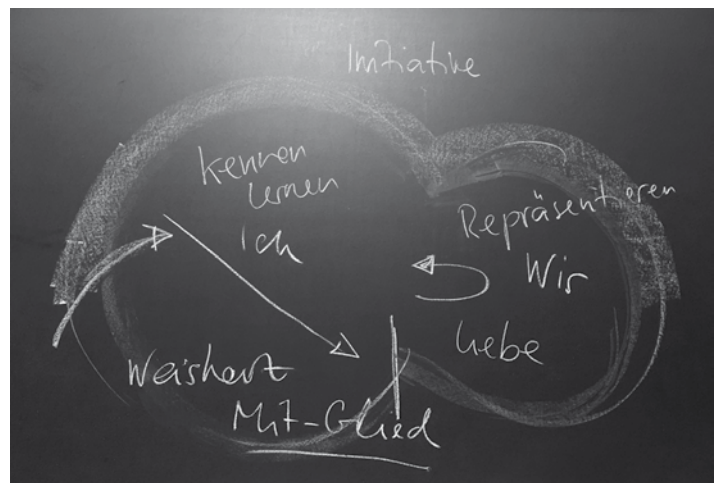 Initiative
Kennen
lernen
Ich
Repräsentieren
Wir
Liebe
Weisheit
Mit-Glied